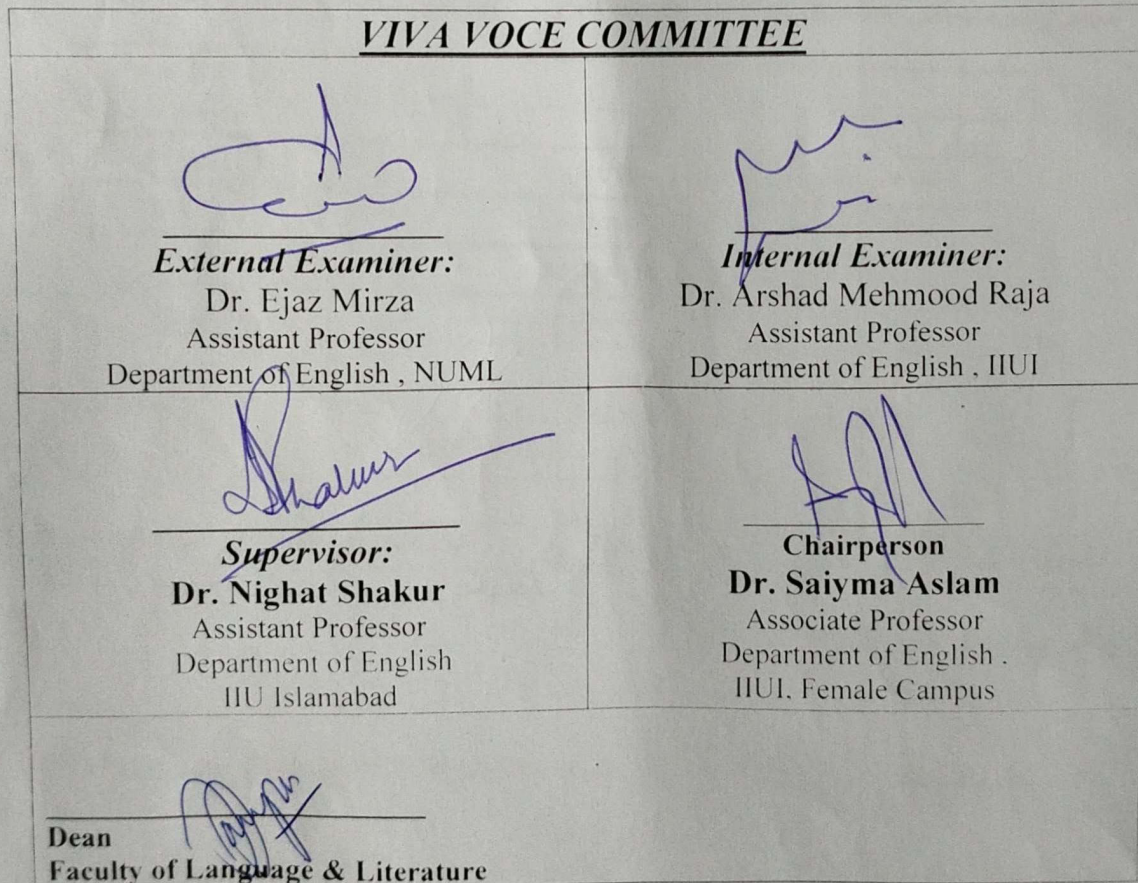 VIVA VOCE COMMITTEE
External Examiner:
Dr. Ejaz Mirza
Assistant Professor
Department of English , NUML
Internal Examiner:
Dr. Arshad Mehmood Raja
Assistant Professor
Department of English , IIUI
Shakur
Supervisor:
Dr. Nighat Shakur
Assistant Professor
Department of English
IIU Islamabad
Chairperson
Dr. Saiyma Aslam
Associate Professor
Department of English .
IIUI. Female Campus
Dean
Faculty of Language & Literature